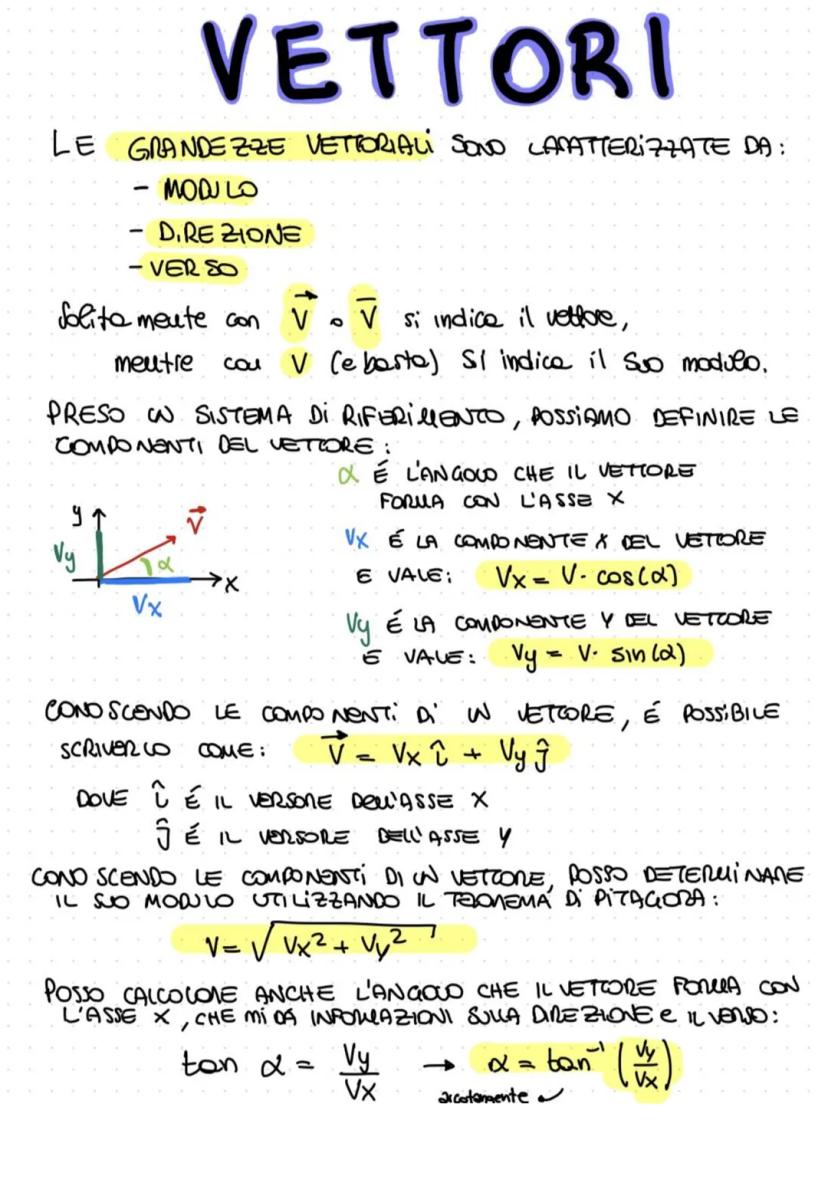 VETTORI
LE GRANDEZZE VETTORIALI SONO CARATTERIZZATE DA:
- MODULO
- DIREZIONE
- VERSO
Solitamente con V⃗ o V̅ si indica il vettore,
mentre con V (e basta) SI indica il suo modulo.
PRESO UN SISTEMA DI RIFERIMENTO, POSSIAMO DEFINIRE LE
COMPONENTI DEL VETTORE:
α É L'ANGOLO CHE IL VETTORE
FORMA CON L'ASSE X
y
V⃗
Vy
α
x
Vx
Vx É LA COMPONENTE X DEL VETTORE
E VALE: Vx = V· cos(α)
Vy É LA COMPONENTE Y DEL VETTORE
E VALE: Vy = V· sin(α)
CONOSCENDO LE COMPONENTI DI UN VETTORE, É POSSIBILE
SCRIVERLO COME: V⃗ = Vx î + Vy ĵ
DOVE î É IL VERSORE DELL'ASSE X
ĵ É IL VERSORE DELL'ASSE Y
CONOSCENDO LE COMPONENTI DI UN VETTORE, POSSO DETERMINARE
IL SUO MODULO UTILIZZANDO IL TEOREMA DI PITAGORA:
V = √(Vx² + Vy²)
POSSO CALCOLARE ANCHE L'ANGOLO CHE IL VETTORE FORMA CON
L'ASSE X, CHE MI DÁ INFORMAZIONI SULLA DIREZIONE e IL VERSO:
tan α = Vy/Vx → α = tan⁻¹ (Vy/Vx)
arcotangente